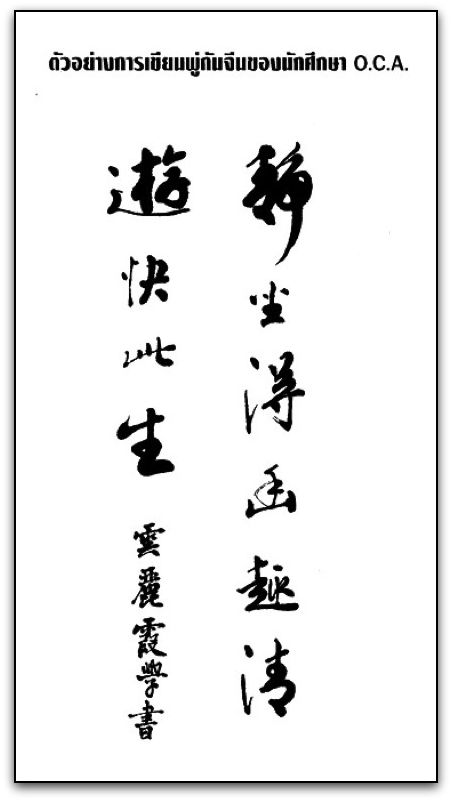 ตัวอย่างการเขียนพู่กันจีนของนักศึกษา O.C.A.
靜坐得幽趣清
遊快此生
雲麗霞學書